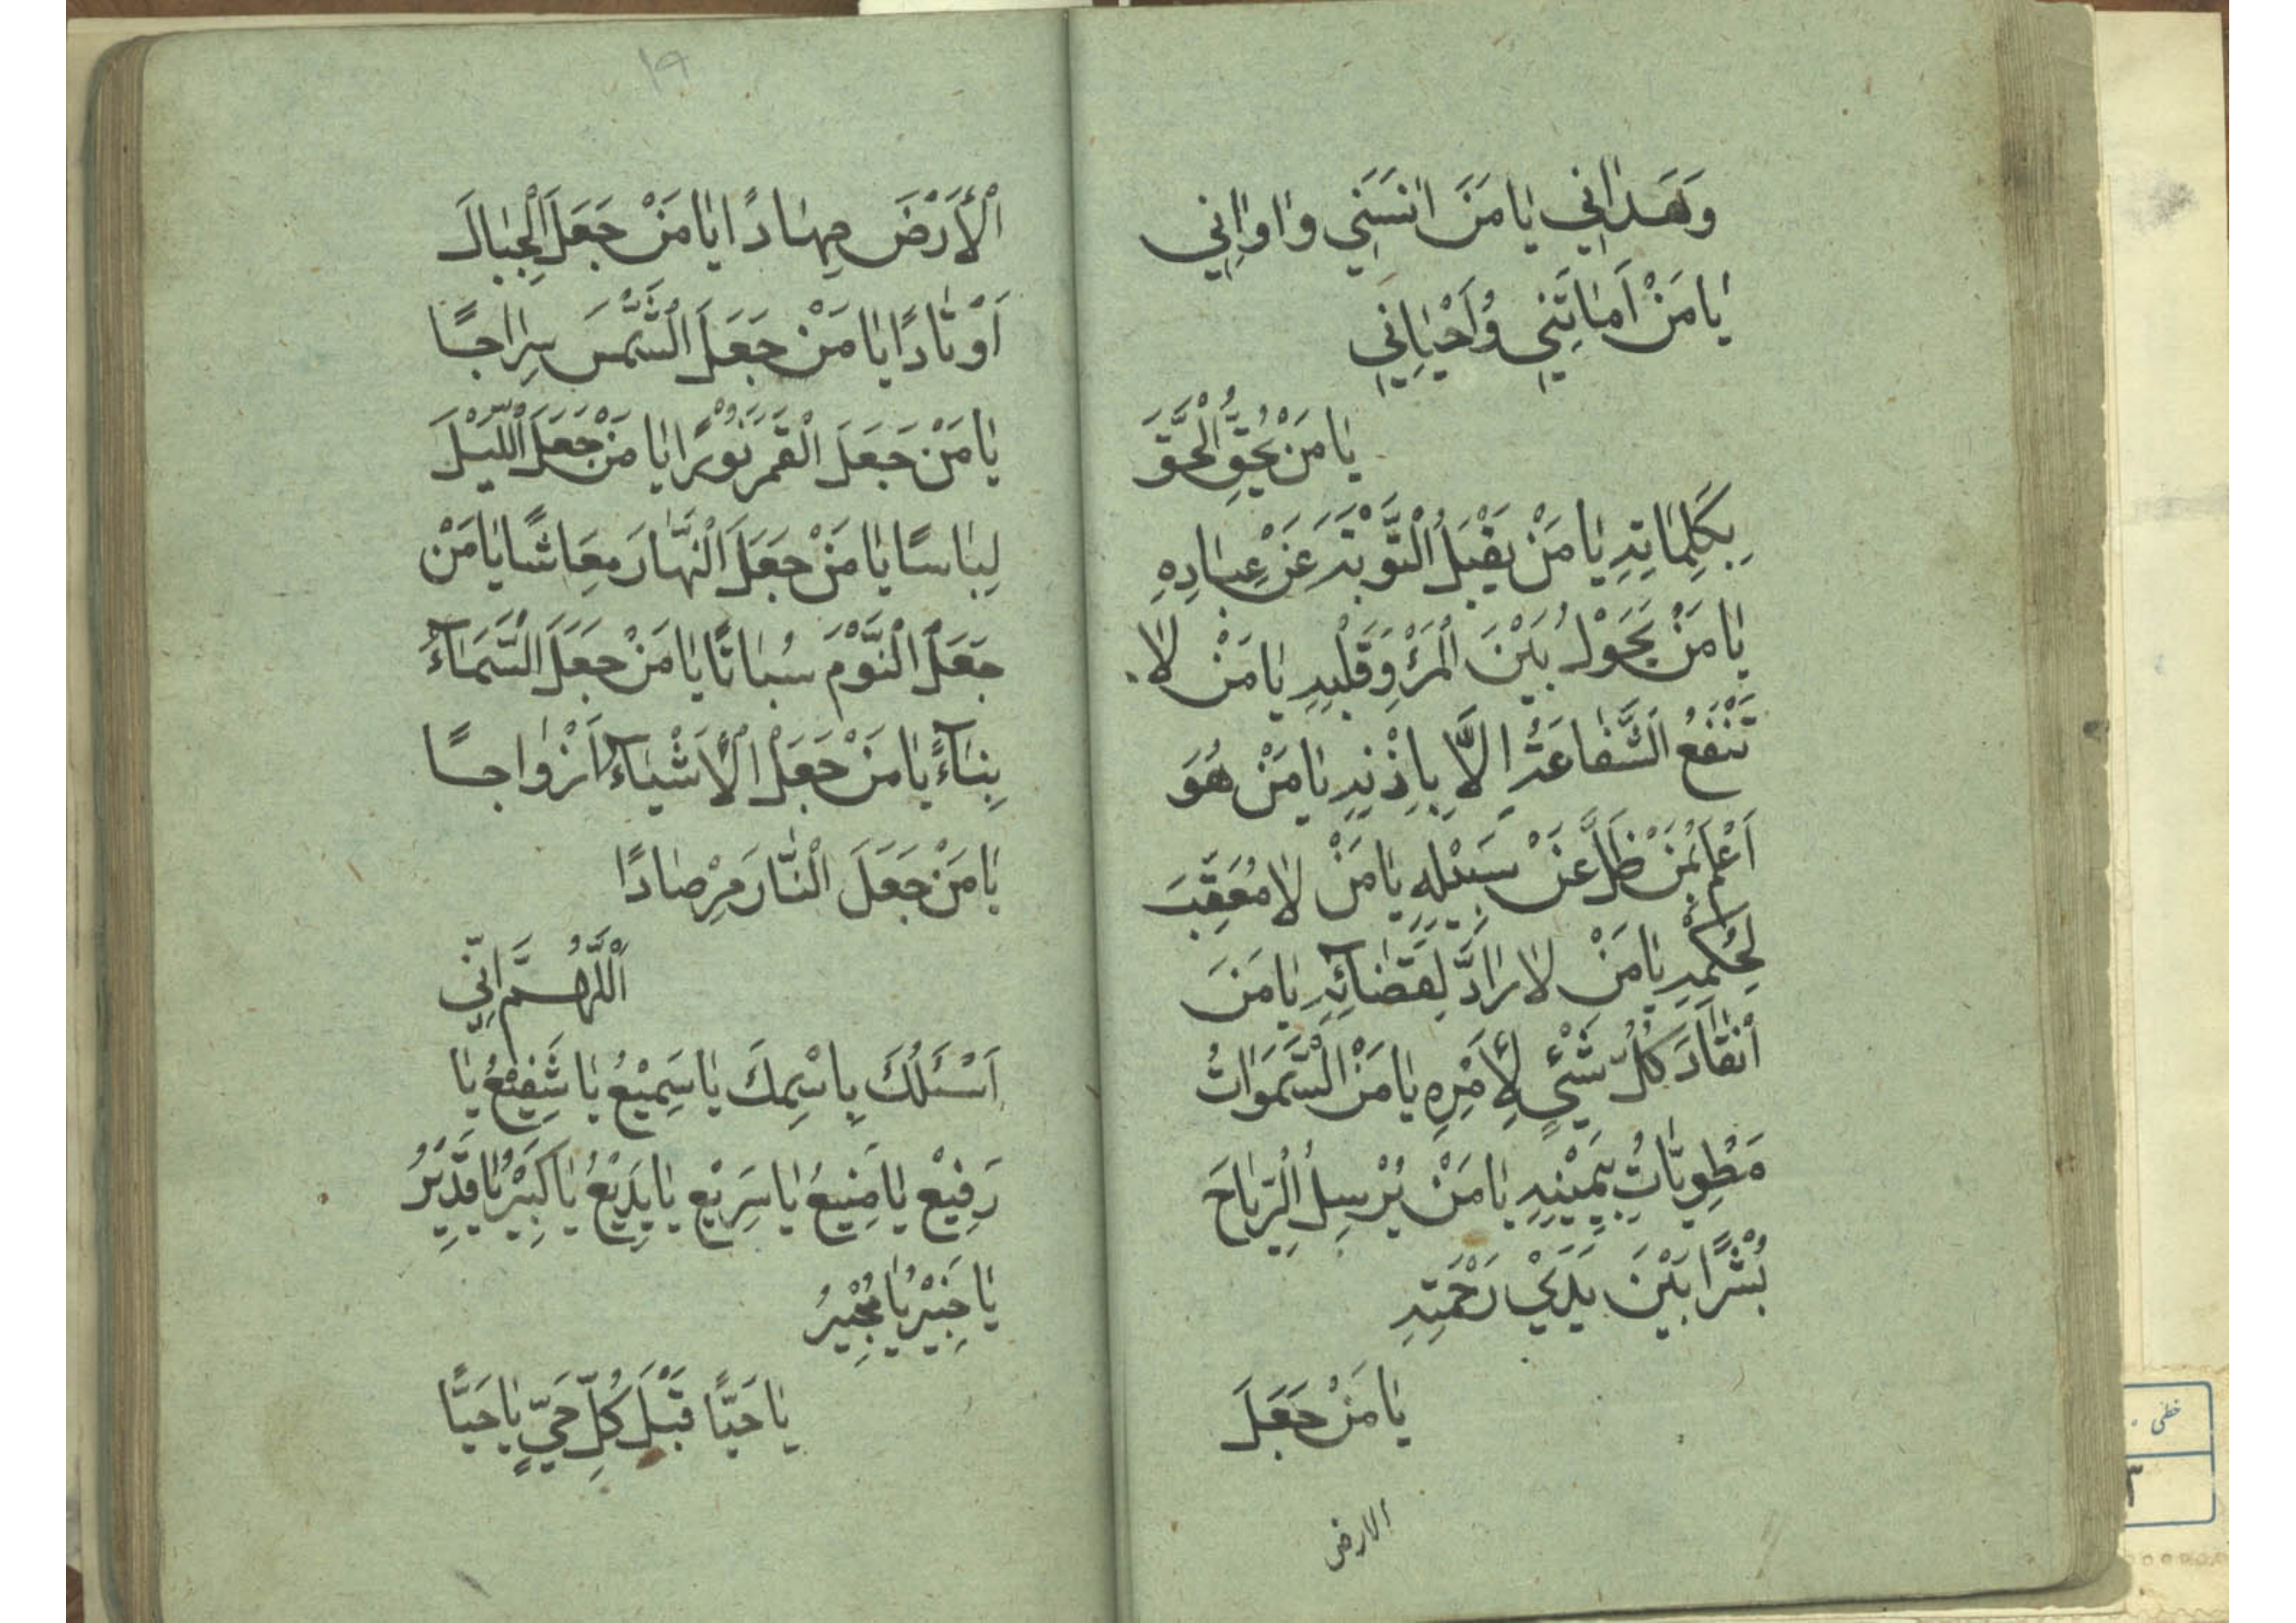 وَهَدٰانِي يٰا مَنَ انَسَنِي وَاوٰانِي
يٰا مَنْ اَمٰاتَنِي وَاَحْيٰانِي
يٰا مَنْ يُحِقُّ الْحَقَّ
بِكَلِمٰاتِهِ يٰا مَنْ يَقْبَلُ الْتَّوْبَةَ عَنْ عِبٰادِهِ
يٰا مَنْ يَحَوْلُ بَيْنَ الْمَرْءِ وَقَلْبِهِ يٰا مَنْ لٰا
تَنْفَعُ الشَّفٰاعَةُ اِلَّا بِاِذْنِهِ يٰا مَنْ هُوَ
اَعْلَمُ بِمَنْ ظَلَّ عَنْ سَبِيْلِهِ يٰا مَنْ لٰا مُعَقِّبَ
لِحُكْمِهِ يٰا مَنْ لٰا رٰادَّ لِقَضٰائِهِ يٰا مَنَ
اَنْقٰادَ كُلُّ شَيْءٍ لِأَمْرِهِ يٰا مَنْ الْسَّمَوٰاتُ
مَطْوِيّٰاتُ بِيَمِيْنِهِ يٰا مَنْ يُرْسِلُ الْرِّيٰاحَ
بُشْرًا بَيْنَ يَدَيْ رَحْمَتِهِ
يٰا مَنْ جَعَلَ
الارض
١٩
الْأَرْضَ مِهٰادًا يٰا مَنْ جَعَلَ الْجِبٰالَ
اَوْتٰادًا يٰا مَنْ جَعَلَ الشَّمْسَ سِرٰاجًا
يٰا مَنْ جَعَلَ الْقَمَرَ نُوْرًا يٰا مَنْ جَعَلَ اللَّيْلَ
لِبٰاسًا يٰا مَنْ جَعَلَ الْنَّهٰارَ مَعٰاشًا يٰا مَنْ
جَعَلَ الْنَّوْمَ سُبٰاتًا يٰا مَنْ جَعَلَ الْسَّمٰاءَ
بِنٰاءً يٰا مَنْ جَعَلَ الْأَشْيٰاءَ اَزْوٰاجًا
يٰا مَنْ جَعَلَ الْنّٰارَ مِرْصٰادًا
اَللّٰهُمَّ اِنِّي
اَسْئَلُكَ بِاسْمِكَ يٰا سَمِيْعُ يٰا شَفِيْعُ يٰا
رَفِيْعُ يٰا مَنِيعُ يٰا سَرِيْعُ يٰا بَدِيْعُ يٰا كَبِيْرُ يٰا قَدِيْرُ
يٰا خَبِيْرُ يٰا مُجِيْرُ
يٰا حَيًّا قَبْلَ كُلِّ حَيٍّ يٰا حَيًّا
خطی